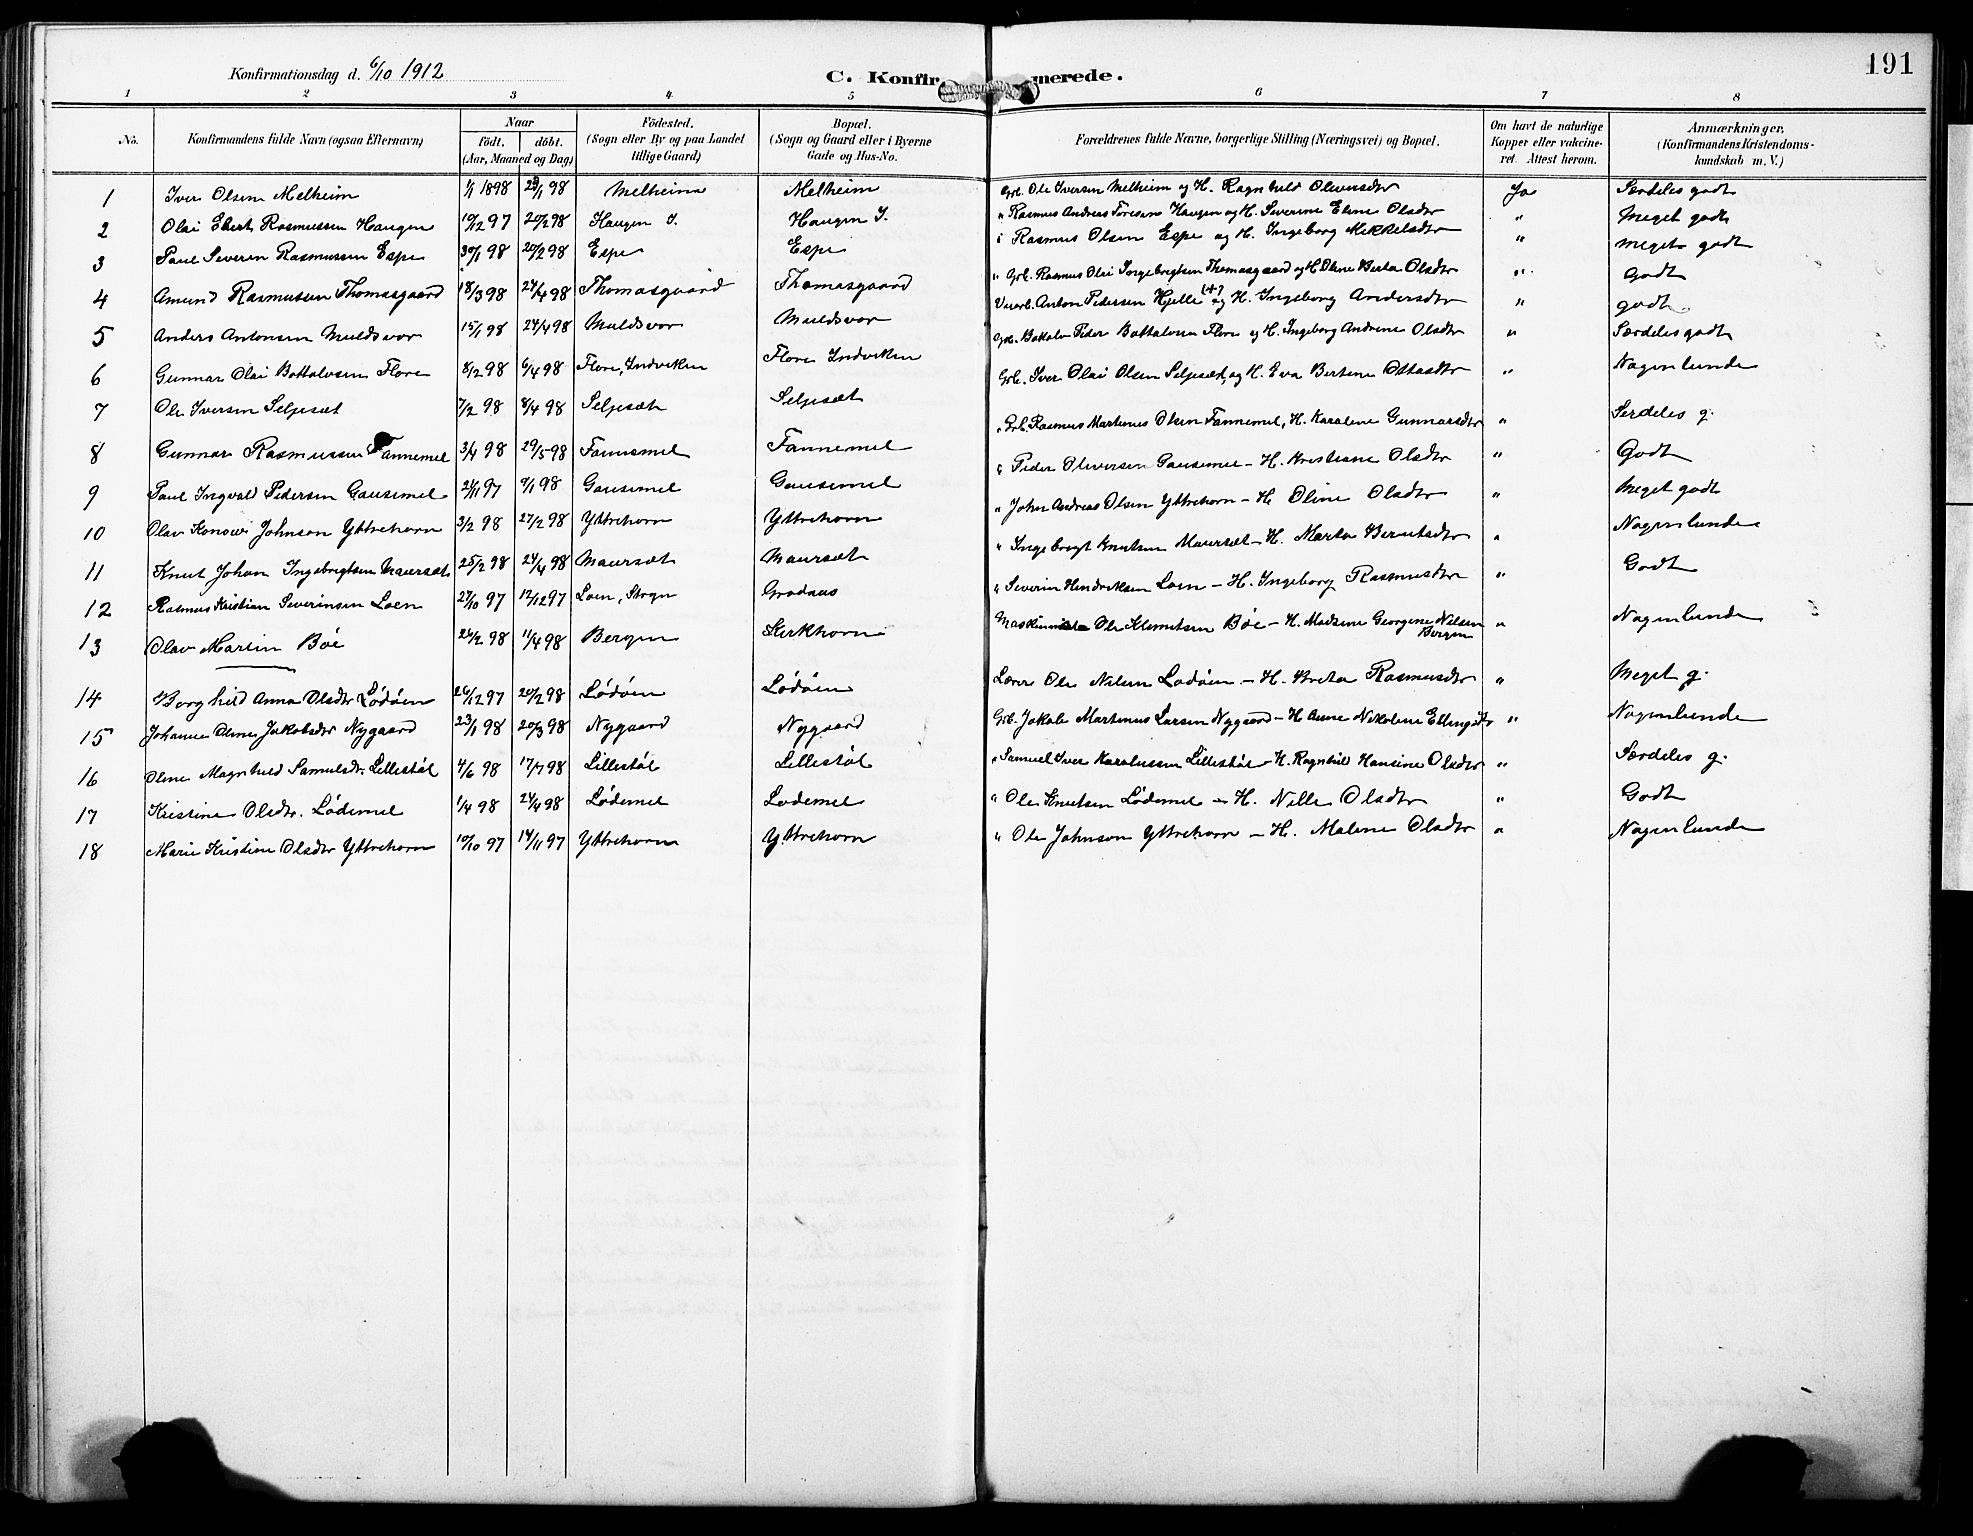 191
Konfirmationsdag d. 6/10 1912
C. Konfir merede.
1 2 3 4 5 6 7 8
No. Konfirmandens fulde Navn (ogsaa Efternavn) Naar födt. döbt. (Aar, Maaned og Dag) Födested. (Sogn eller By og paa Landet tillige Gaard) Bopæl. (Sogn og Gaard eller i Byerne Gade og Hus-No. Forældrenes fulde Navne, borgerlige Stilling (Næringsvei) og Bopæl. Om havt de naturlige Kopper eller vakcineret. Attest herom. Anmærkninger. (Konfirmandens Kristendomskundskab m. V.)
1 Iver Olsen Melheim 1/1 1898 23/1 98 Melheim Melheim Grb. Ole Iversen Melheim og H. Ragnhild Oliversdtr Ja Særdeles godt
2 Olai Ebert Rasmussen Haugen 10/12 97 20/2 98 Haugen I. Haugen I. " Rasmus Andreas Toresen Haugen og H. Severine Eline Olsdtr " Meget godt
3 Paul Severin Rasmussen Espe 30/1 98 20/2 98 Espe Espe Rasmus Olsen Espe og H. Ingeborg Mikkelsdtr " Meget godt
4 Amund Rasmussen Thomasgaard 18/3 98 24/4 98 Thomasgaard Thomasgaard " Grb. Rasmus Olai Ingebrigtsen Thomasgaard og H. Oline Berta Olsdtr " Godt
5 Anders Antonsen Muldsvor 15/1 98 24/4 98 Muldsvor Muldsvor Anton Pedersen Hjelle (+) og H. Ingeborg Andersdtr " godt.
6 Gunnar Olai Bottolvsen Flore 8/2 98 6/4 98 Flore, Indviken Flore Indviken Grb. Bottolv Peder Bottolvsen Flore og H. Ingeborg Andrine Olsdtr " Særdeles godt
7 Ole Iversen Seljesæt 7/2 98 8/4 98 Seljesæt Seljesæt Grb. Iver Olai Olsen Seljesæt, og H. Eva Bertine Ottosdtr " Nogenlunde
8 Gunnar Rasmussen Fannemel 3/4 98 29/5 98 Fannemel Fannemel " Grb. Rasmus Martinus Olsen Fannemel, H. Karoline Gunnarsdtr " Særdeles g.
9 Paul Ingvald Pedersen Gausemel 24/11 97 9/1 98 Gausemel Gausemel " Peder Oliversen Gausemel - H. Kristiane Olsdtr " Godt
10 Olav Konow Johnson Yttrehorn 3/2 98 27/2 98 Yttrehorn Yttrehorn " John Andreas Olsen Yttrehorn - H. Oline Olsdtr " Meget godt
11 Knut Johan Ingebrigtsen Maursæt 25/2 98 24/4 98 Maursæt Maursæt " Ingebrigt Knutsen Maursæt - H. Marta Berntsdtr " Nogenlunde
12 Rasmus Kristian Severinsen Loen 27/10 97 12/12 97 Loen, Stryn Grodaas " Severin Hendriksen Loen - H. Ingeborg Rasmusdtr " Godt
13 Olav Martin Böe 24/2 98 11/4 98 Bergen Kirkhorn Maskinmester Ole Klemetsen Böe - H. Madsine Georgine Nilsen Bergen " Nogenlunde
14 Borghild Anna Olsdtr Lödöen 26/12 97 20/2 98 Lödöen Lödöen Lærer Ole Nilsen Lødöen - H. Brita Rasmusdtr " Meget g.
15 Johanne Oline Jakobsdtr Nygaard 23/1 98 20/3 98 Nygaard Nygaard Grb. Jakob Martinus Larsen Nygaard - H. Anne Nikoline Ellingsdtr " Nogenlunde
16 Oline Magnhild Samuelsdtr. Lillestöl 4/6 98 17/7 98 Lillestöl Lillestöl " Samuel Iver Karolussen Lillestöl - H. Ragnhild Hansine Olsdtr " Særdeles g.
17 Kristine Olsdtr. Lödemel 1/4 98 24/4 98 Lödemel Lødemel " Ole Knutsen Lödemel - H. Nille Olsdtr " Godt
18 Marie Kristine Olsdtr Yttrehorn 10/10 97 14/11 97 Yttrehorn Yttrehorn " Ole Johnson Yttrehorn - H. Malene Olsdtr " Nogenlunde